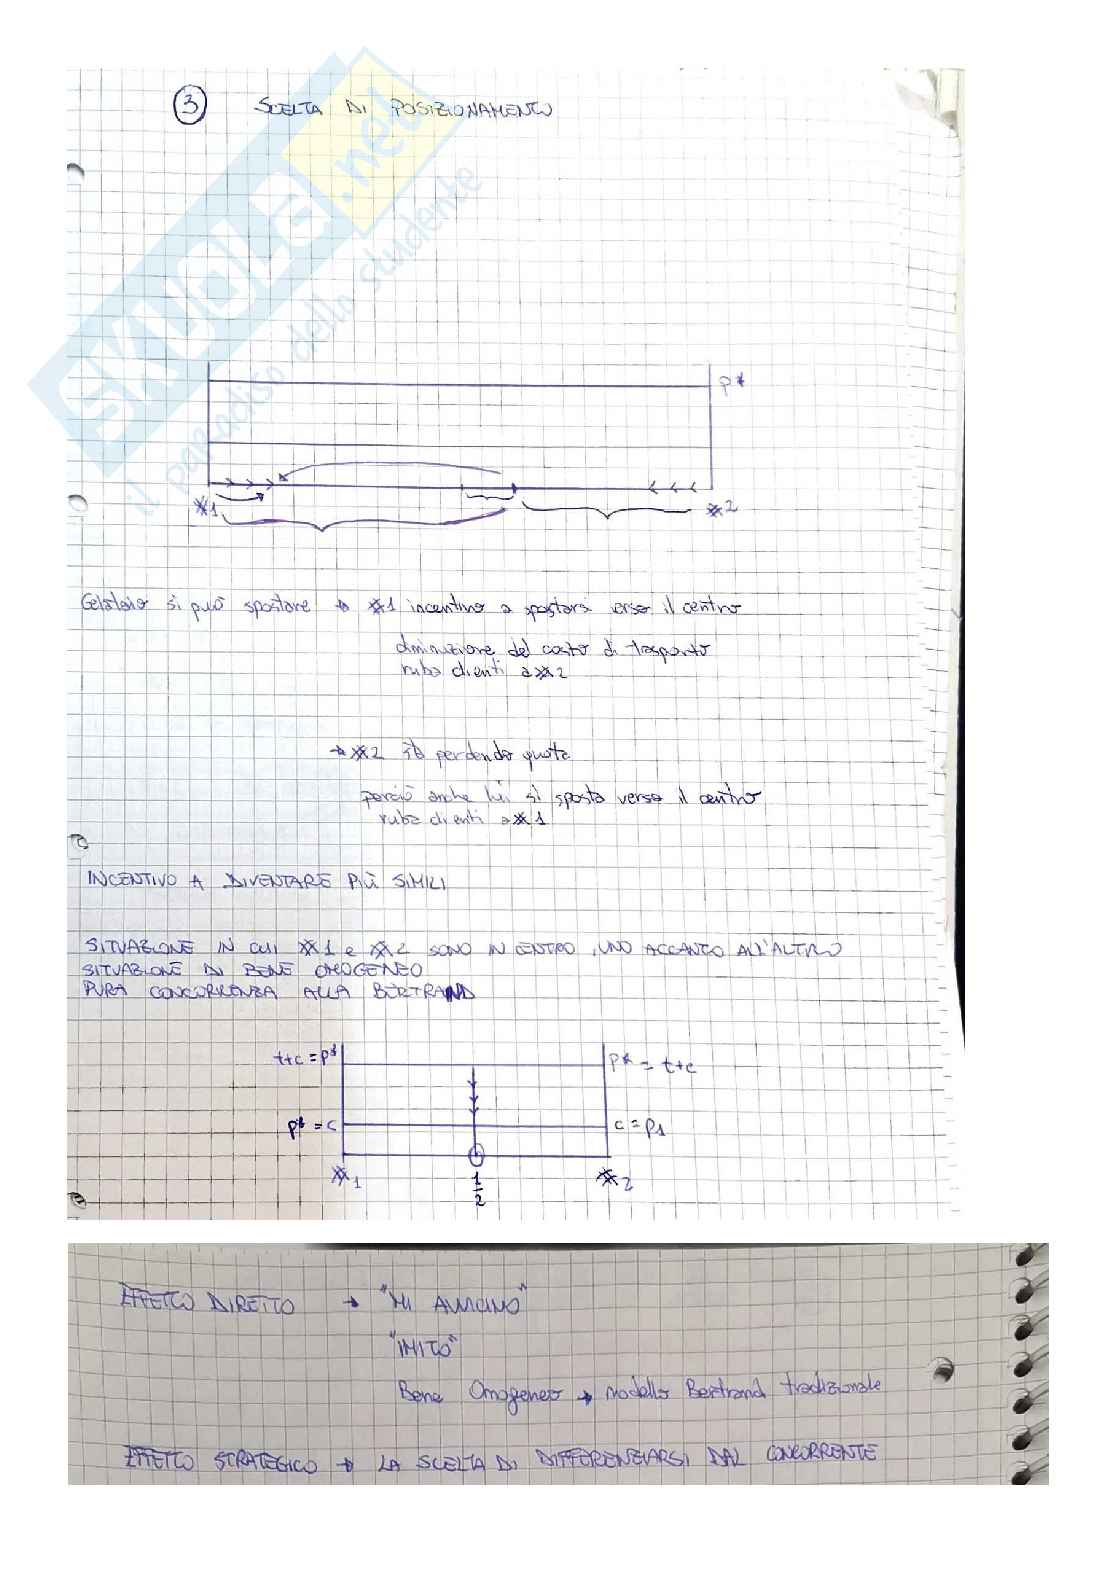 3 SCELTA DI POSIZIONAMENTO
SKUOLA.net
il paradiso dello studente
p*
※1 ※2
Gelataio si può spostare → ※1 incentivo a spostarsi verso il centro
diminuzione del costo di trasporto
ruba clienti a ※2
→ ※2 sta perdendo quota
perciò anche lui si sposta verso il centro
ruba clienti a ※1
INCENTIVO A DIVENTARE PIÙ SIMILI
SITUAZIONE IN CUI ※1 e ※2 SONO IN CENTRO, UNO ACCANTO ALL'ALTRO
SITUAZIONE DI BENE OMOGENEO
PURA CONCORRENZA ALLA BERTRAND
t+c = p* p* = t+c
p* = c c = p1
※1 1/2 ※2
EFFETTO DIRETTO → "MI AVVICINO"
"IMITO"
Bene Omogeneo → modello Bertrand tradizionale
EFFETTO STRATEGICO → LA SCELTA DI DIFFERENZIARSI DAL CONCORRENTE